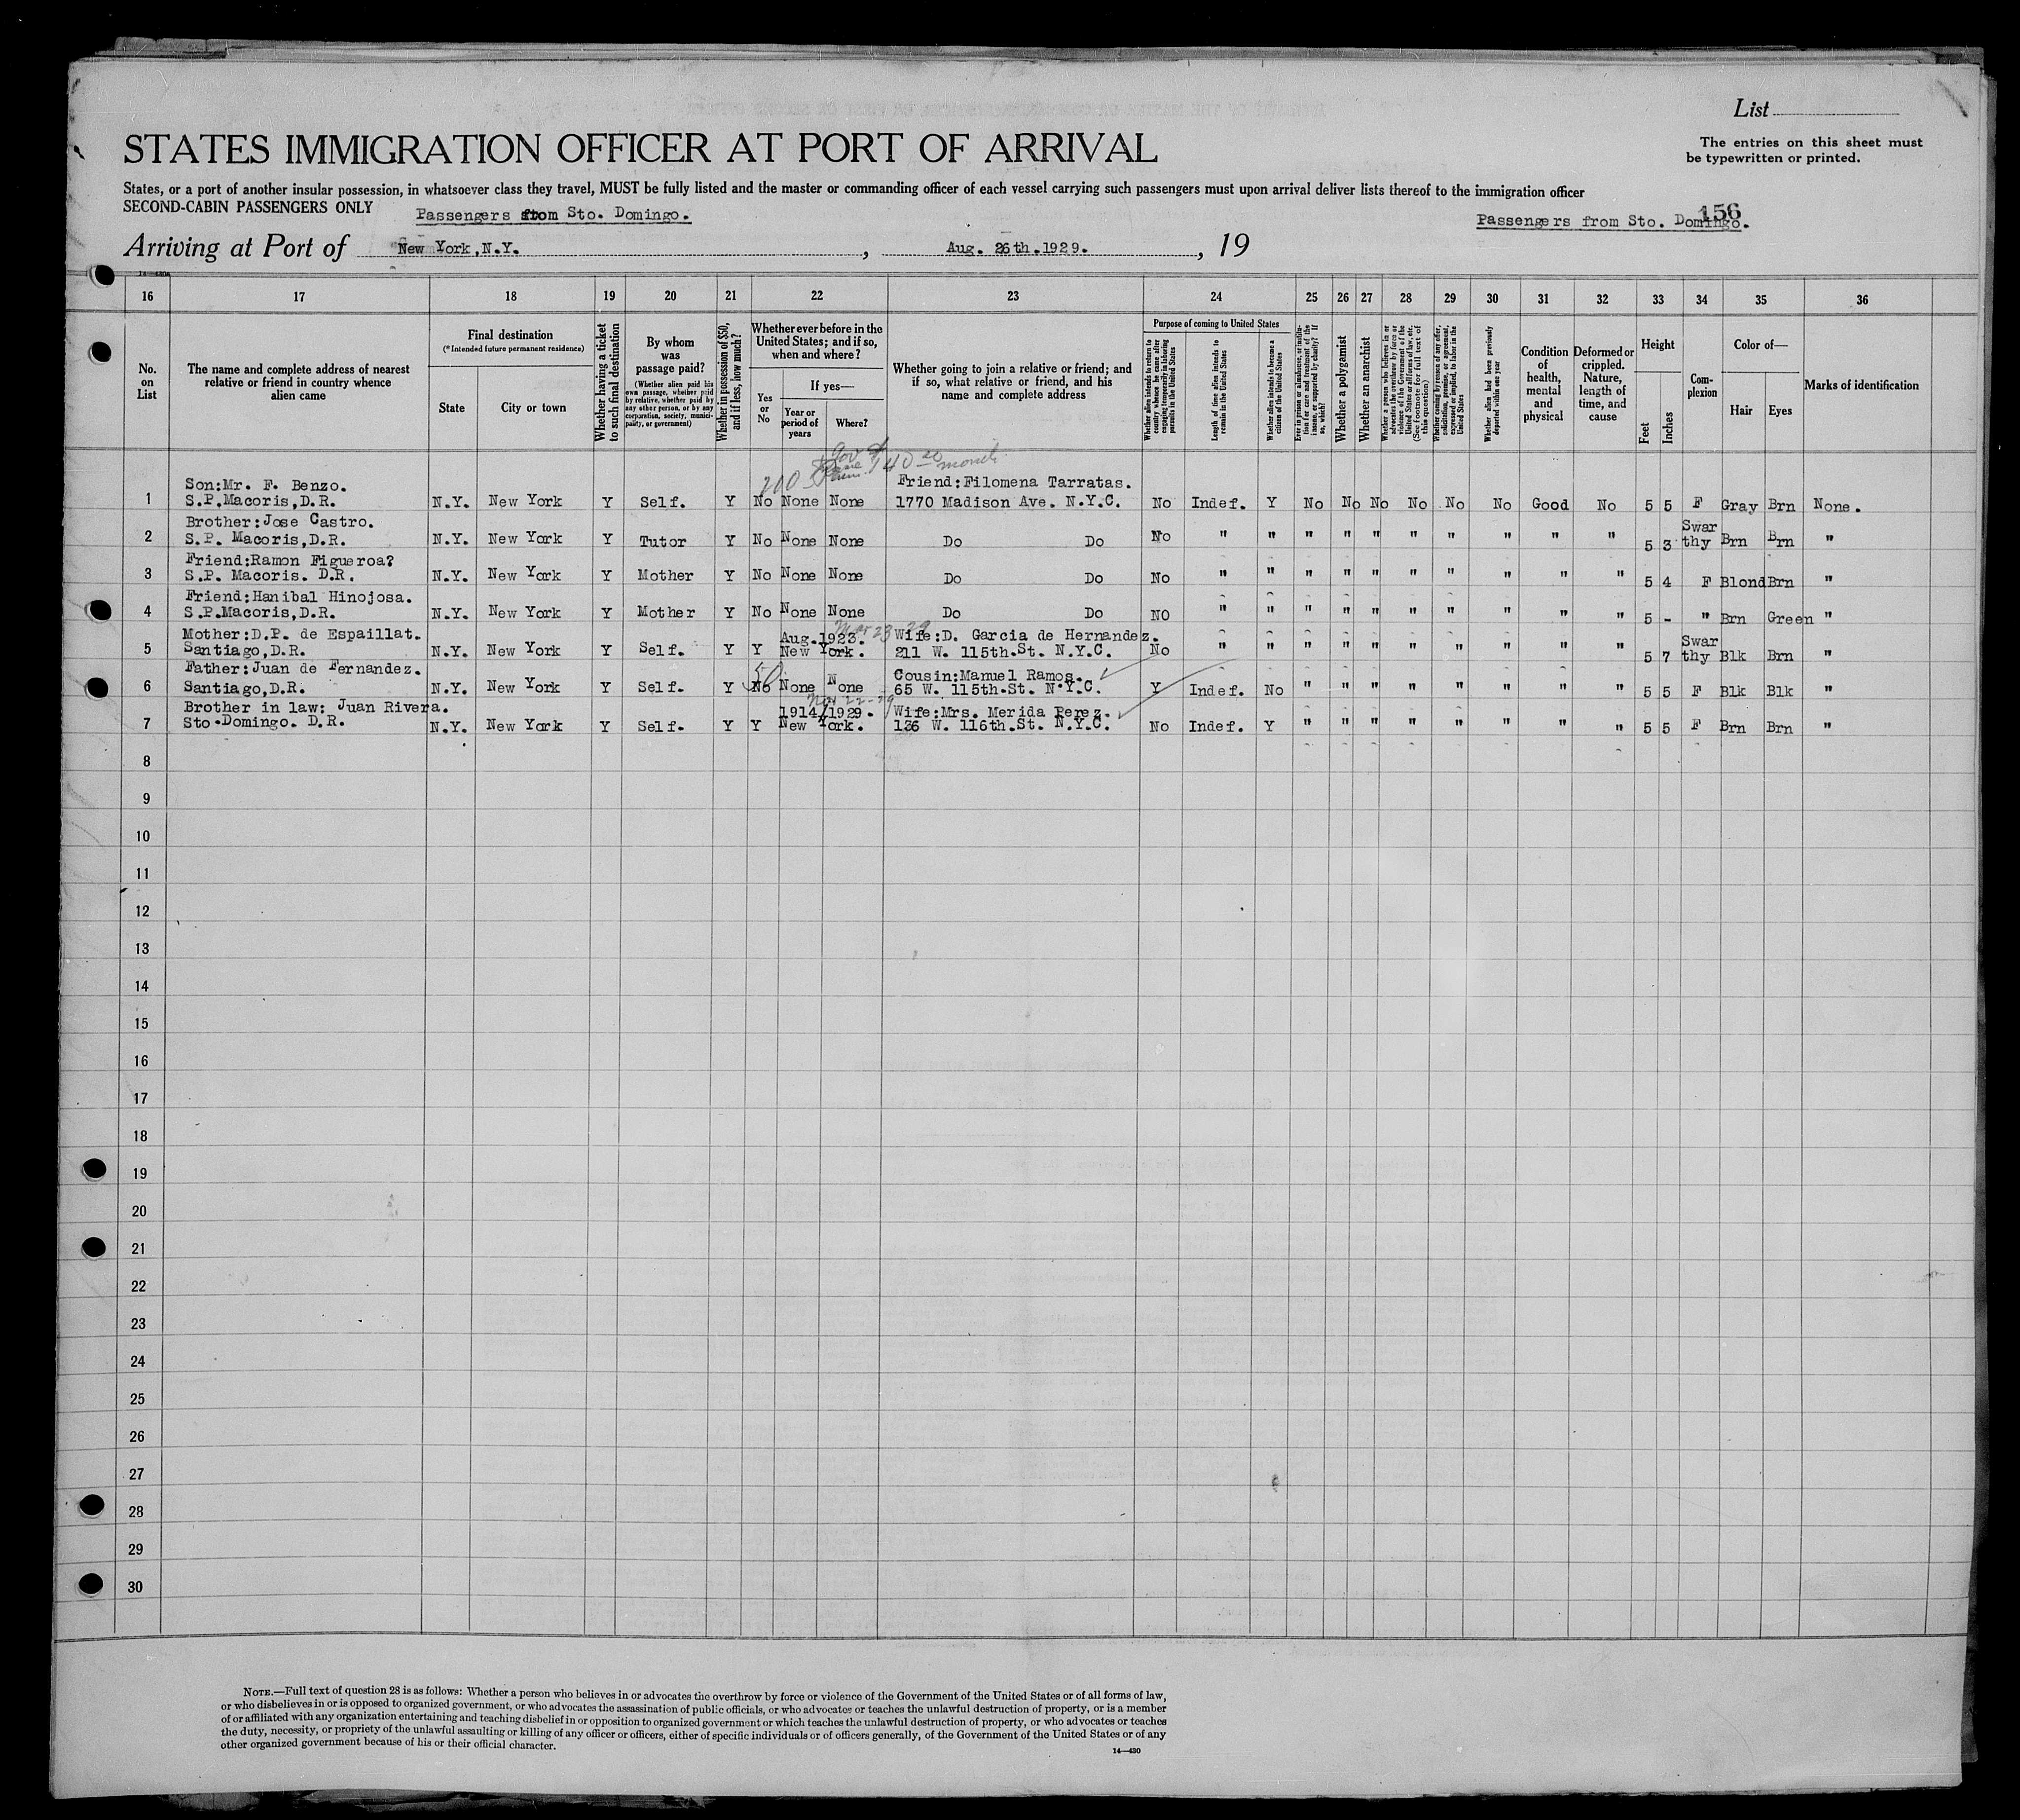 List
STATES IMMIGRATION OFFICER AT PORT OF ARRIVAL
The entries on this sheet must
be typewritten or printed.
States, or a port of another insular possession, in whatsoever class they travel, MUST be fully listed and the master or commanding officer of each vessel carrying such passengers must upon arrival deliver lists thereof to the immigration officer
SECOND-CABIN PASSENGERS ONLY
Passengers from Sto. Domingo.
156
Passengers from Sto. Domingo.
Arriving at Port of New York, N.Y. , Aug. 26th. 1929. , 19
16 17 18 19 20 21 22 23 24 25 26 27 28 29 30 31 32 33 34 35 36
No. on List
The name and complete address of nearest relative or friend in country whence alien came
Final destination
(*Intended future permanent residence)
State
City or town
Whether having a ticket to such final destination
By whom was passage paid?
(Whether alien paid his own passage, whether paid by relative, whether paid by any other person, or by any corporation, society, municipality, or government)
Whether in possession of $50, and if less, how much?
Whether ever before in the United States; and if so, when and where?
Yes or No
If yes—
Year or period of years
Where?
Whether going to join a relative or friend; and if so, what relative or friend, and his name and complete address
Purpose of coming to United States
Whether alien intends to return to country whence he came after engaging temporarily in laboring pursuits in the United States
Length of time alien intends to remain in the United States
Whether alien intends to become a citizen of the United States
Ever in prison or almshouse, or institution for care and treatment of the insane, or supported by charity? If so, which?
Whether a polygamist
Whether an anarchist
Whether a person who believes in or advocates the overthrow by force or violence of the Government of the United States or all forms of law, etc. (See footnote for full text of this question)
Whether coming by reason of any offer, solicitation, promise, or agreement, expressed or implied, to labor in the United States
Whether alien had been previously deported within one year
Condition of health, mental and physical
Deformed or crippled. Nature, length of time, and cause
Height
Feet
Inches
Complexion
Color of—
Hair
Eyes
Marks of identification
200 140 00 month
1 Son:Mr. F. Benzo. S.P.Macoris,D.R. N.Y. New York Y Self. Y No None None Friend:Filomena Tarratas. 1770 Madison Ave. N.Y.C. No Indef. Y No No No No No No Good No 5 5 F Gray Brn None.
2 Brother:Jose Castro. S.P. Macoris,D.R. N.Y. New York Y Tutor Y No None None Do Do No " " " " " " " " " " 5 3 Swar thy Brn Brn "
3 Friend:Ramon Figueroa? S.P. Macoris. D.R. N.Y. New York Y Mother Y No None None Do Do No " " " " " " " " " " 5 4 F Blond Brn "
4 Friend:Hanibal Hinojosa. S.P.Macoris,D.R. N.Y. New York Y Mother Y No None None Do Do NO " " " " " " " " " " 5 - " Brn Green "
5 Mother:D.P. de Espaillat. Santiago,D.R. N.Y. New York Y Self. Y Y Aug.1923. New York. Mar 23 29 Wife:D. Garcia de Hernandez. 211 W. 115th.St. N.Y.C. No " " " " " " " " " " 5 7 Swar thy Blk Brn "
6 Father:Juan de Fernandez. Santiago,D.R. N.Y. New York Y Self. Y 50 No None None Cousin:Manuel Ramos. 65 W. 115th.St. N.Y.C. Y Indef. No " " " " " " " " 5 5 F Blk Blk "
7 Brother in law: Juan Rivera. Sto.Domingo. D.R. N.Y. New York Y Self. Y Y 1914/1929. New York. 22-29 Wife:Mrs. Merida Perez. 136 W. 116th.St. N.Y.C. No Indef. Y " " " " " " " " 5 5 F Brn Brn "
8
9
10
11
12
13
14
15
16
17
18
19
20
21
22
23
24
25
26
27
28
29
30
NOTE.—Full text of question 28 is as follows: Whether a person who believes in or advocates the overthrow by force or violence of the Government of the United States or of all forms of law,
or who disbelieves in or is opposed to organized government, or who advocates the assassination of public officials, or who advocates or teaches the unlawful destruction of property, or is a member
of or affiliated with any organization entertaining and teaching disbelief in or opposition to organized government or which teaches the unlawful destruction of property, or who advocates or teaches
the duty, necessity, or propriety of the unlawful assaulting or killing of any officer or officers, either of specific individuals or of officers generally, of the Government of the United States or of any
other organized government because of his or their official character.
14—430